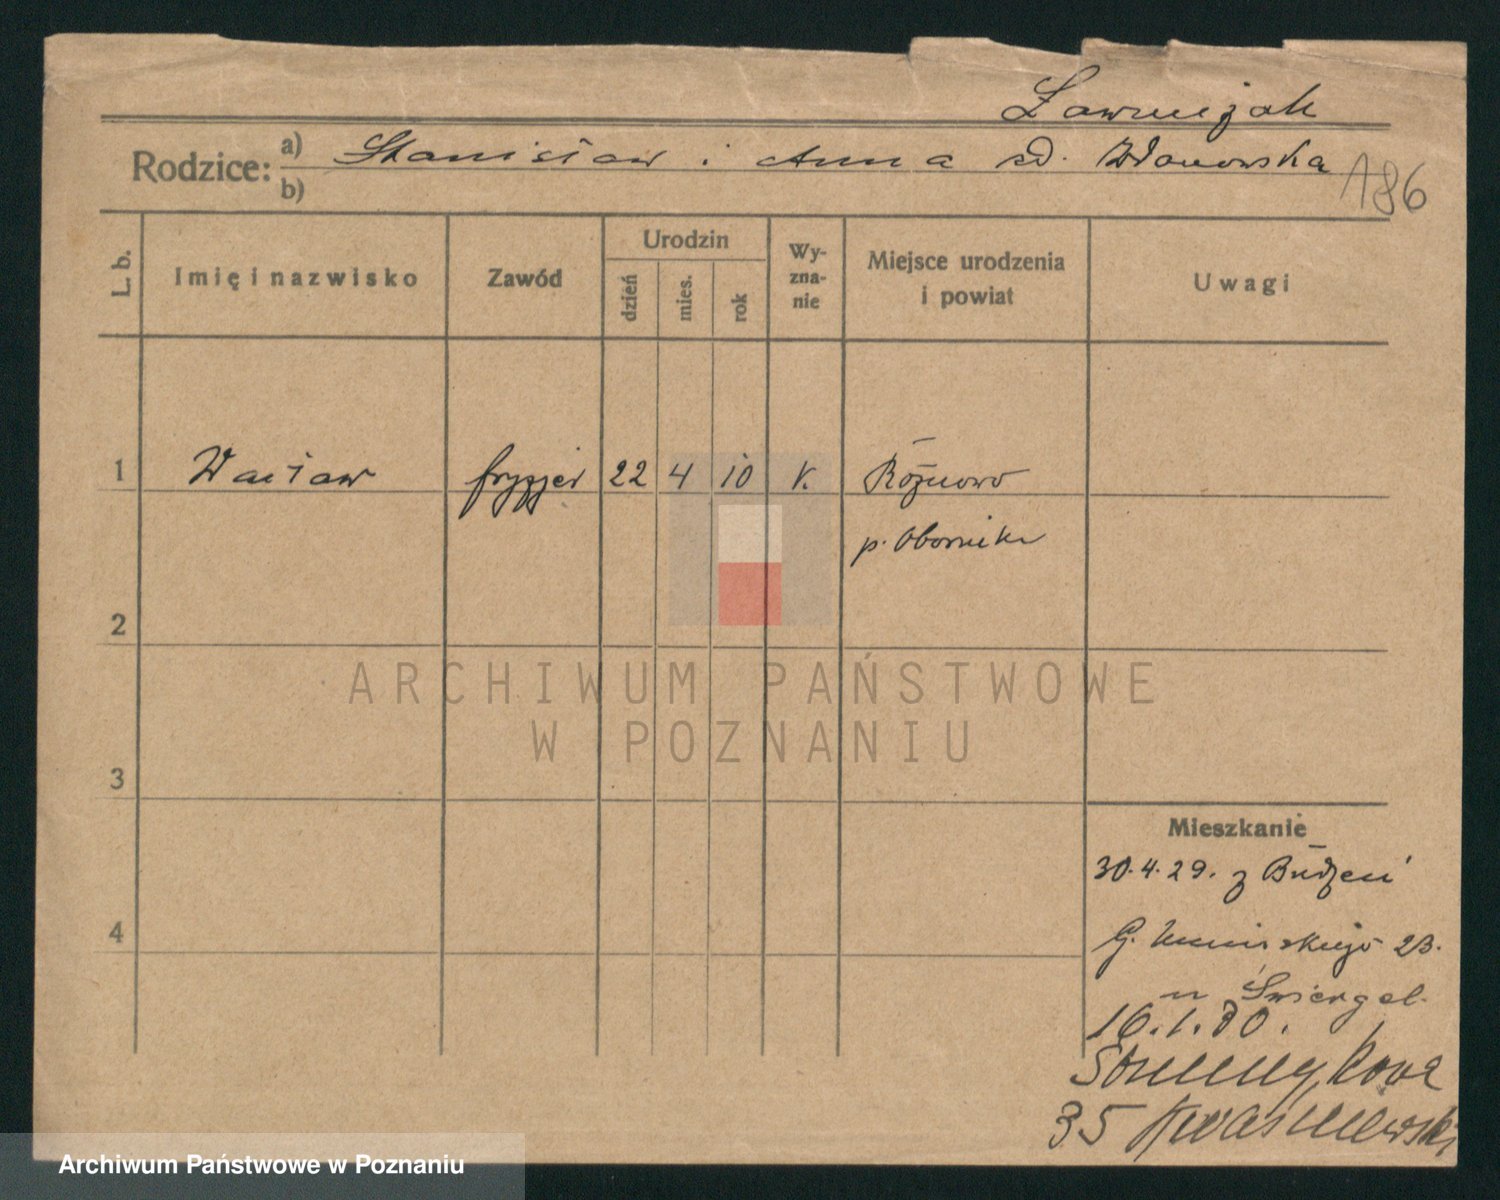 Ławniczak
Rodzice: a) Stanisław i Anna zd. Wdowska 186
b)
L. b. Imię i nazwisko Zawód Urodzin dzień mies. rok Wy-zna-nie Miejsce urodzenia i powiat Uwagi
1 Wacław fryzjer 22 4 10 k. Różnowo
p. Oborniki
2
ARCHIWUM PAŃSTWOWE
W POZNANIU
3
Mieszkanie
30.4.29. z Budzeń
4
G. 23.
u Świergel.
16.1.30.
35 Kwaśniewski
Archiwum Państwowe w Poznaniu